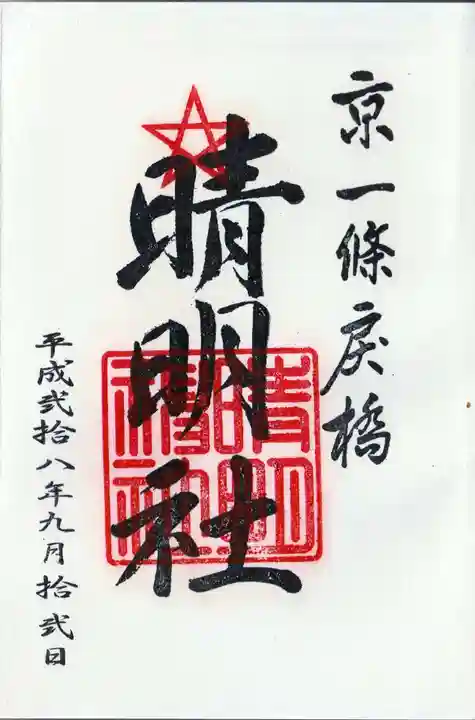 京一條戻橋
晴明社
平成弐拾八年九月拾弐日
晴明神社